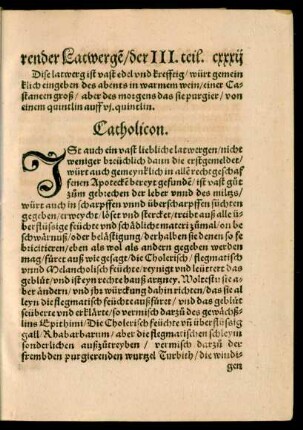 render Latwergẽ/der III. teil. cxxxij
Dise latwerg ist vast edel vnd krefftig/ würt gemein
klich eingeben des abents in warmem wein/einer Ca-
stanein groß/ aber des morgens das sie purgier/ von
einem quintlin auff vj. quintlin.
Catholicon.
ISt auch ein vast liebliche latwergen/nicht
weniger breüchlich dann die erstgemeldet/
würt auch gemeynklich in all rechtgeschaf
fenen Apotecken bereyt gefundẽ/ ist vast gůt
zům gebrechen der leber vnnd des miltzs/
würt auch in scharpffen vnnd überscharpffen süchten
gegeben/ erweycht/ löset vnd stercket/ treibt auß alle ü-
berflüssige feüchte vnd schädliche materi zůmal/ on be
schwärnuß/ oder belästigung/ derhalben sie denen so fe
bicitieren/ eben als wol als andern gegeben werden
mag/ füret auß wie gesagt/ die Cholerisch/ flegmatisch
vnnd Melancholisch feüchte/ reynigt vnd leüttert das
geblüt/ vnd ist eyn rechte hauß artzney. Wöltestu sie a-
ber ändern/ vnd jhr würckung dahin richten/ das sie al
leyn die flegmatisch feüchte außfüret/ vnd das geblüt
seüberte vnd erklärte/ so vermisch darzů des gewächß-
lins Epithimi/ Die Cholerisch feüchte vñ überflüssig
gall/ Rhabarbarum/ aber die flegmatischen schleym
sonderlichen außzůtreyben/ vermisch darzů der
frembden purgierenden wurtzel Turbith/ die windi-
gen